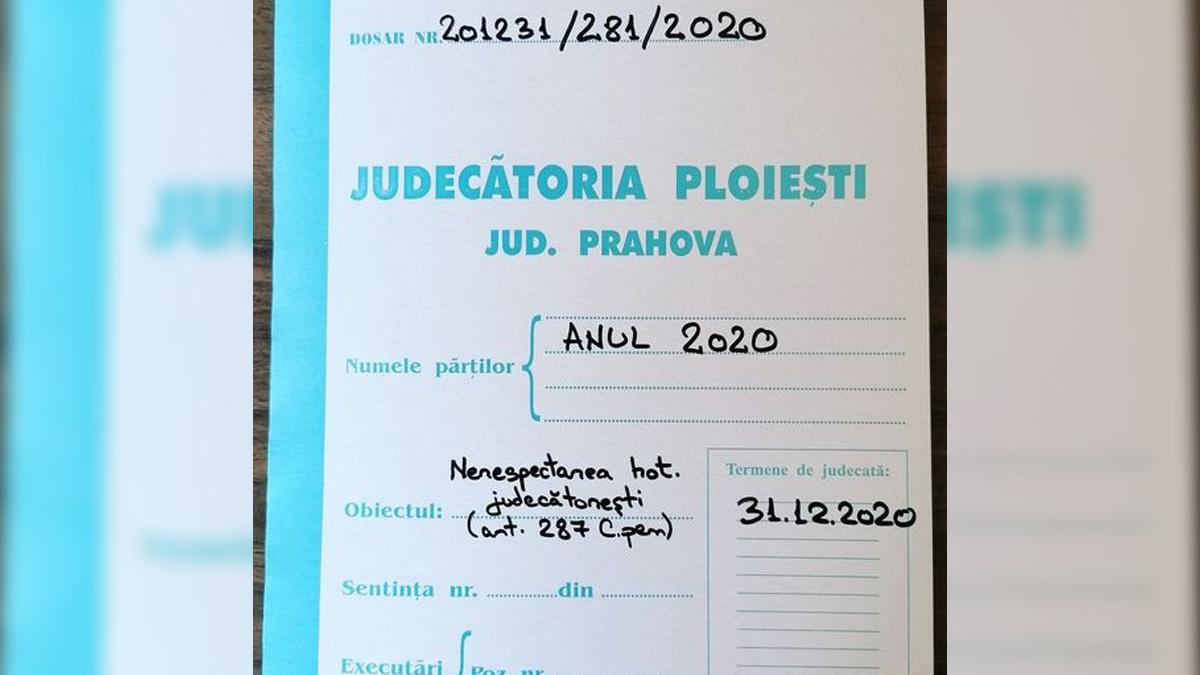 DOSAR NR. 201231/281/2020
JUDECĂTORIA PLOIEȘTI
JUD. PRAHOVA
Numele părților
ANUL 2020
Obiectul: Nerespectarea hot.
judecătorești
(art. 287 C.pen)
Termene de judecată:
31.12.2020
Sentința nr. ............ din ................
Executări
Poz. nr.